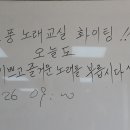 퐁 노래교실 화이팅!!
오늘도
이쁘고 즐거운 노래를 부릅시다
26 09: